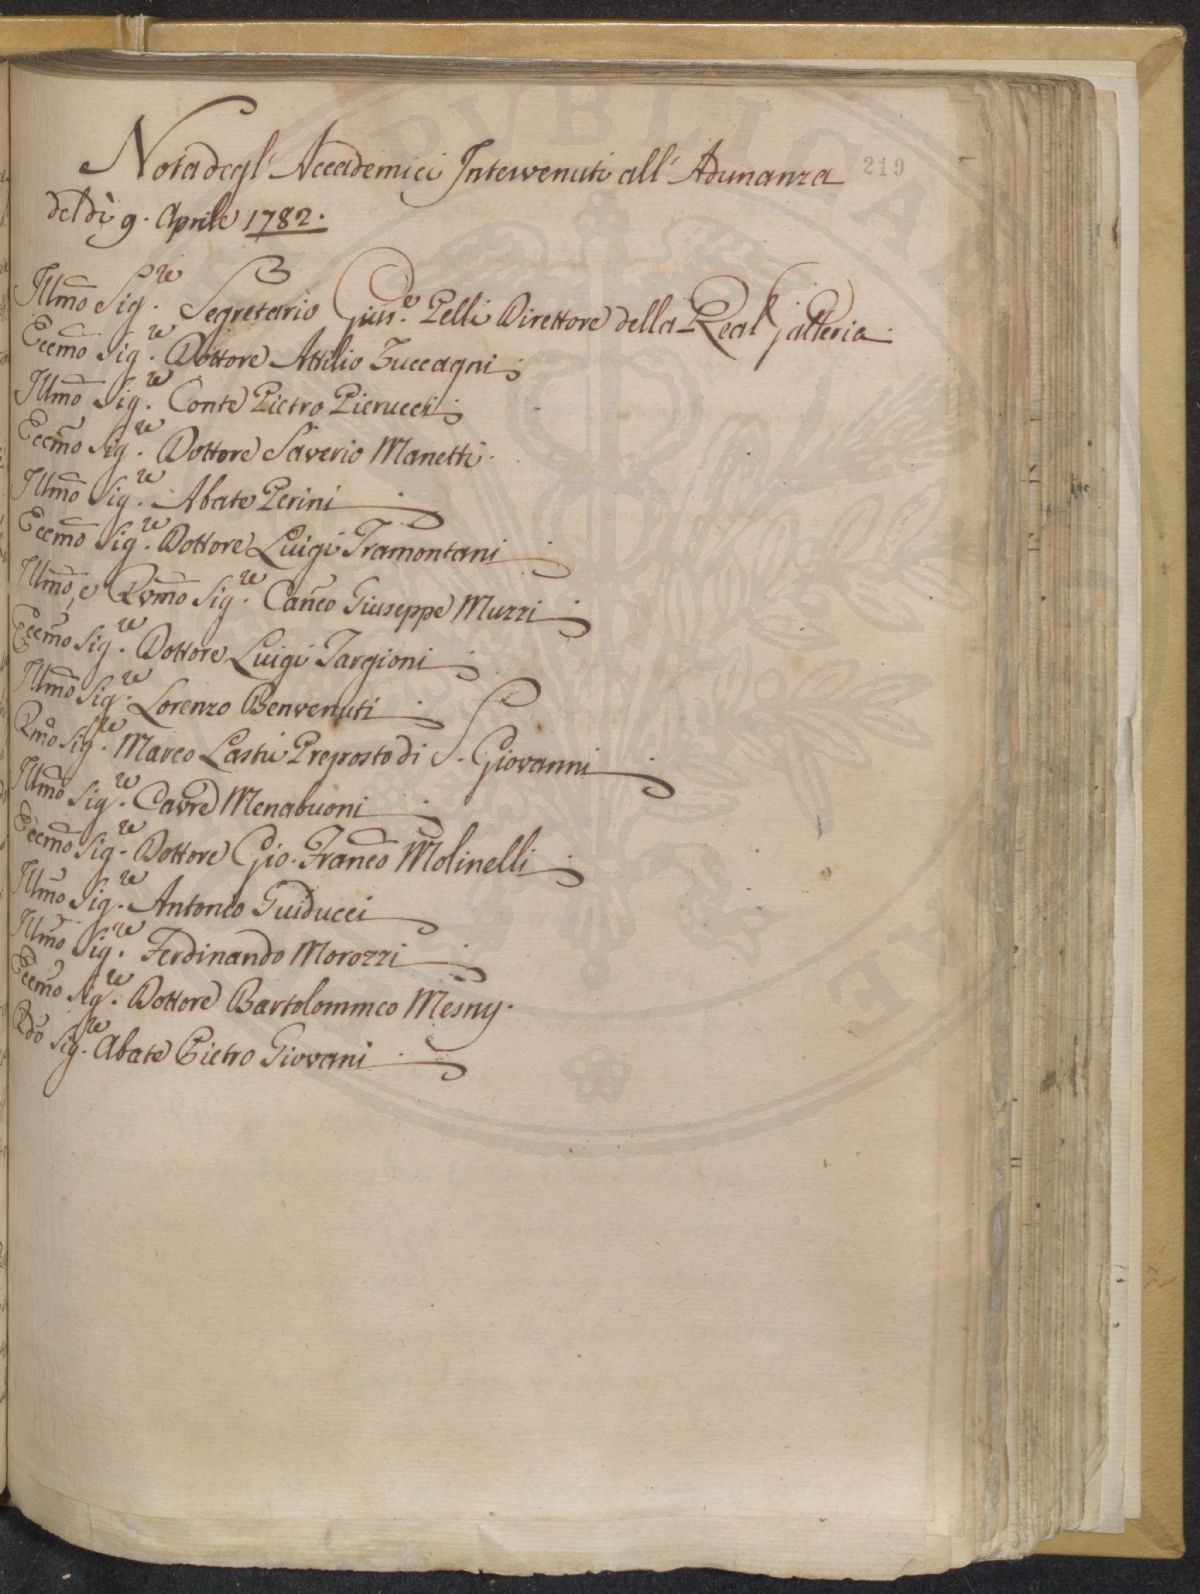 219
Nota degl' Accademici Intervenuti all' Adunanza
del dì 9. Aprile 1782.
Illmo Sig.re Segretario Gius.e Pelli Direttore della Real Galleria
Eccmo Sig.re Dottore Attilio Zuccagni
Illmo Sig.re Conte Pietro Pierucci
Eccmo Sig.re Dottore Saverio Manetti.
Illmo Sig.re Abate Perini
Eccmo Sig.re Dottore Luigi Tramontani
Illmo, e Rvmo Sig.re Canco Giuseppe Muzzi
Eccmo Sig.re Dottore Luigi Targioni
Illmo Sig.re Lorenzo Benvenuti
Rmo Sig.re Marco Lastri Preposto di S. Giovanni
Illmo Sig.re Cavre Menabuoni
Eccmo Sig.re Dottore Gio. Franco Molinelli
Illmo Sig.re Antonio Guiducci
Illmo Sig.re Ferdinando Morozzi
Eccmo Sig.re Dottore Bartolommeo Mesny.
Rdo Sig.re Abate Pietro Giovani